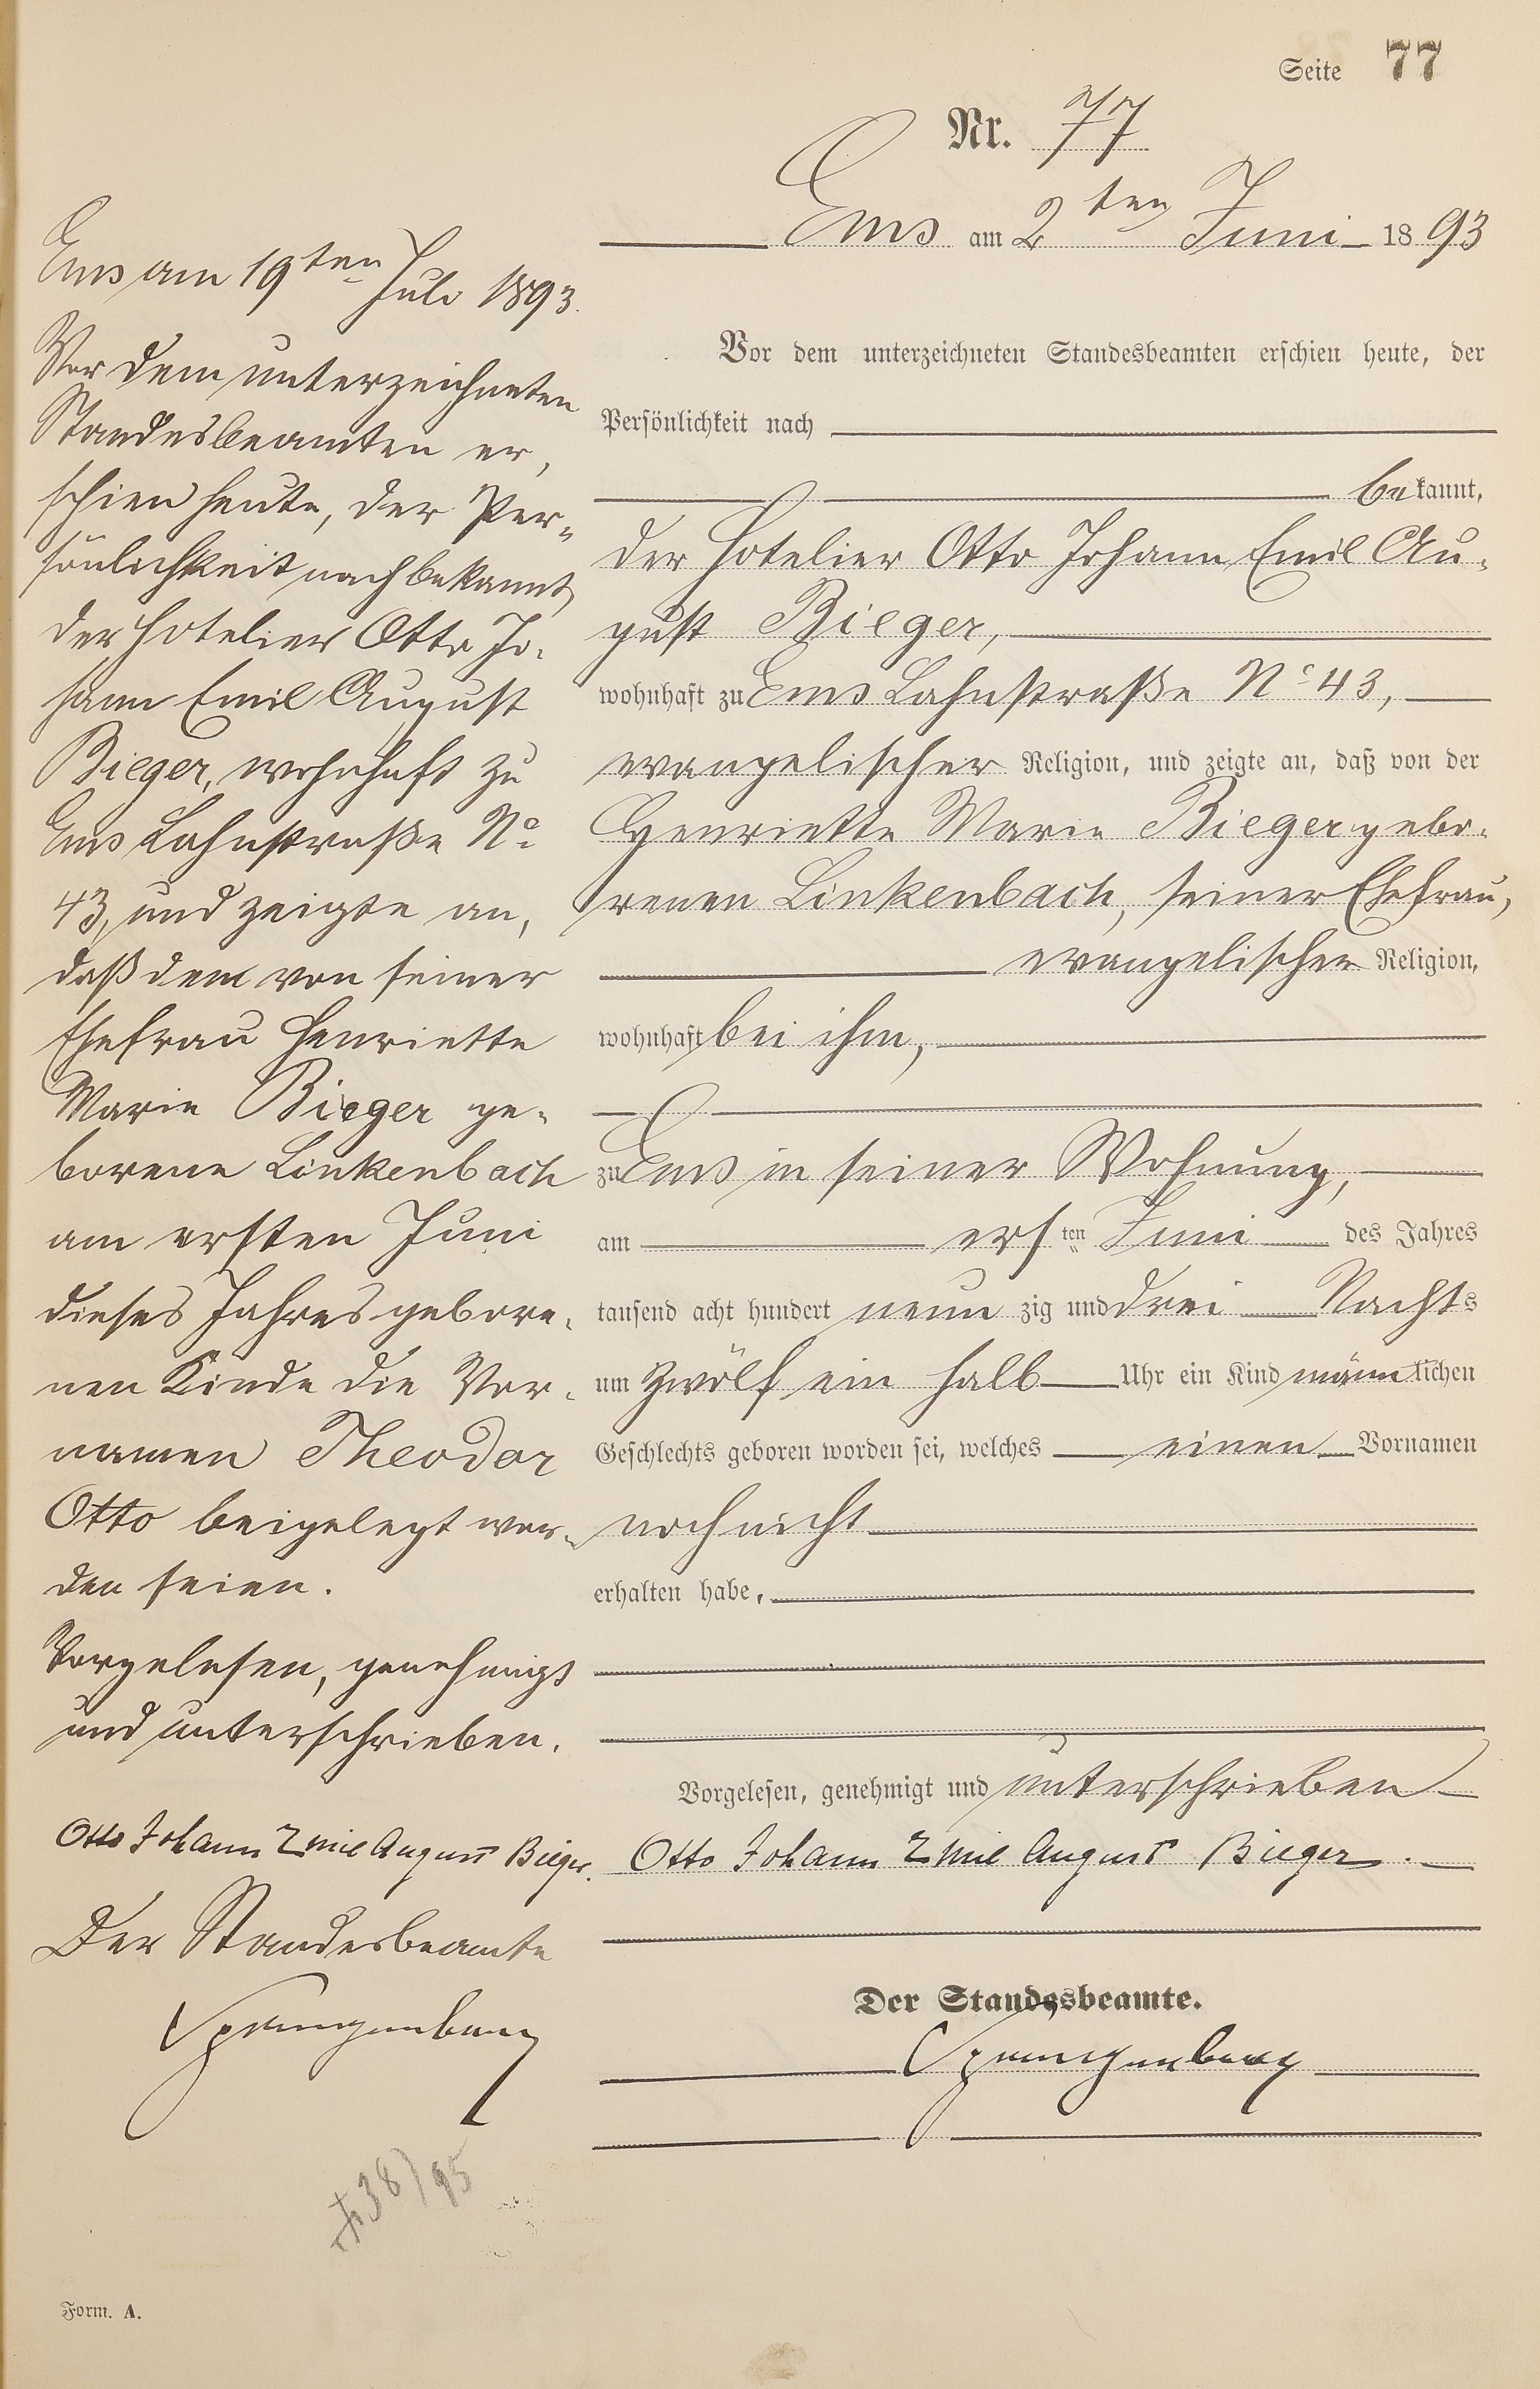 Seite 77
Nr. 77
Ems am 2ten Juni 1893
Vor dem unterzeichneten Standesbeamten erschien heute, der
Persönlichkeit nach
bekannt,
der Hotelier Otto Johann Emil Au-
gust Bieger,
wohnhaft zu Ems Lahnstraße No 43,
evangelischer Religion, und zeigte an, daß von der
Henriette Marie Bieger gebo-
renen Linkenbach, seiner Ehefrau,
evangelischer Religion,
wohnhaft bei ihm,
zu Ems in seiner Wohnung,
am ersten Juni des Jahres
tausend acht hundert neun zig und drei Nachts
um zwölf ein halb Uhr ein Kind männlichen
Geschlechts geboren worden sei, welches einen Vornamen
noch nicht
erhalten habe,
Vorgelesen, genehmigt und unterschrieben
Otto Johann Emil August Bieger.
Der Standesbeamte.
Spangenberg
Ems am 19ten Juli 1893.
Vor dem unterzeichneten
Standesbeamten er,
schien heute, der Per-
sönlichkeit nach bekannt,
der Hotelier Otto Jo-
hann Emil August
Bieger, wohnhaft zu
Ems Lahnstraße No
43, und zeigte an,
daß dem von seiner
Ehefrau Henriette
Marie Bieger ge-
borene Linkenbach
am ersten Juni
dieses Jahres gebore-
nen Kinde die Vor-
namen Theodor
Otto beigelegt wor-
den seien.
Vorgelesen, genehmigt
und unterschrieben.
Otto Johann Emil August Bieger.
Der Standesbeamte
Spangenberg
38/95
Form. A.